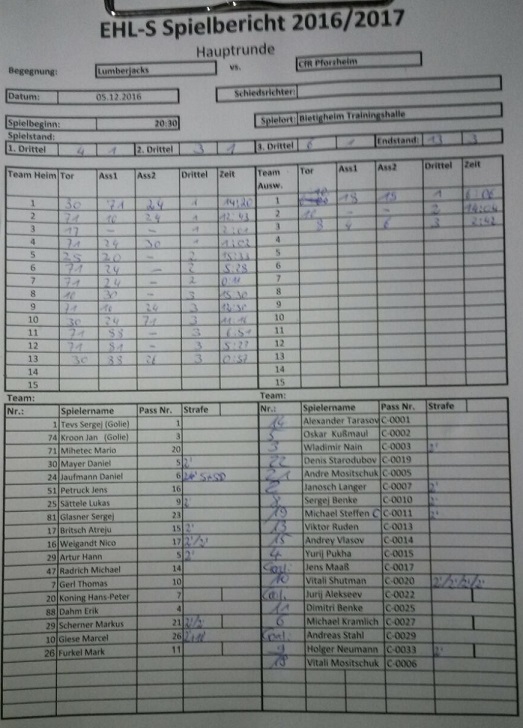 EHL-S Spielbericht 2016/2017
Hauptrunde
Begegnung: Lumberjacks vs. CfR Pforzheim
Datum: 05.12.2016 Schiedsrichter:
Spielbeginn: 20:30 Spielort: Bietigheim Trainingshalle
Spielstand:
1. Drittel 4 1 2. Drittel 3 1 3. Drittel 6 1 Endstand: 13 3
Team Heim Tor Ass1 Ass2 Drittel Zeit Team Ausw. Tor Ass1 Ass2 Drittel Zeit
1 30 71 24 1 14:20 1 18 1
2 71 16 24 1 12:43 2 10 - - 2
3 17 - - 1 3 8 4 6 3 2:42
4 71 24 30 1 4
5 25 20 - 2 5
6 71 24 - 2 5:28 6
7 71 24 - 2 7
8 30 - 3 8
9 71 3 9
10 30 24 71 3 10
11 71 88 - 3 6:51 11
12 71 81 - 3 5:27 12
13 30 88 26 3 0:57 13
14 14
15 15
Team: Team:
Nr.: Spielername Pass Nr. Strafe Nr.: Spielername Pass Nr. Strafe
1 Tevs Sergej (Golie) 1 Alexander Tarasov C-0001
74 Kroon Jan (Golie) 3 5 Oskar Kußmaul C-0002
71 Mihetec Mario 20 3 Wladimir Nain C-0003 2'
30 Mayer Daniel 5 2' 22 Denis Starodubov C-0019
24 Jaufmann Daniel 6 Andre Mositschuk C-0005
51 Petruck Jens 16 Janosch Langer C-0007 2'
25 Sättele Lukas 9 2' 8 Sergej Benke C-0010 2'
81 Glasner Sergej 23 19 Michael Steffen C C-0011 2'
17 Britsch Atreju 15 2' 13 Viktor Ruden C-0013
16 Weigandt Nico 17 2'/2' 15 Andrey Vlasov C-0014
29 Artur Hann 5 2' 4 Yurij Pukha C-0015
47 Radrich Michael 14 Jens Maaß C-0017
7 Gerl Thomas 10 10 Vitali Shutman C-0020 2'/2'/2'/2'
20 Koning Hans-Peter 7 Jurij Alekseev C-0022
88 Dahm Erik 4 11 Dimitri Benke C-0025
29 Scherner Markus 21 2'/2' 6 Michael Kramlich C-0027
10 Giese Marcel 26 Andreas Stahl C-0029
26 Furkel Mark 11 Holger Neumann C-0033 2'
18 Vitali Mositschuk C-0006